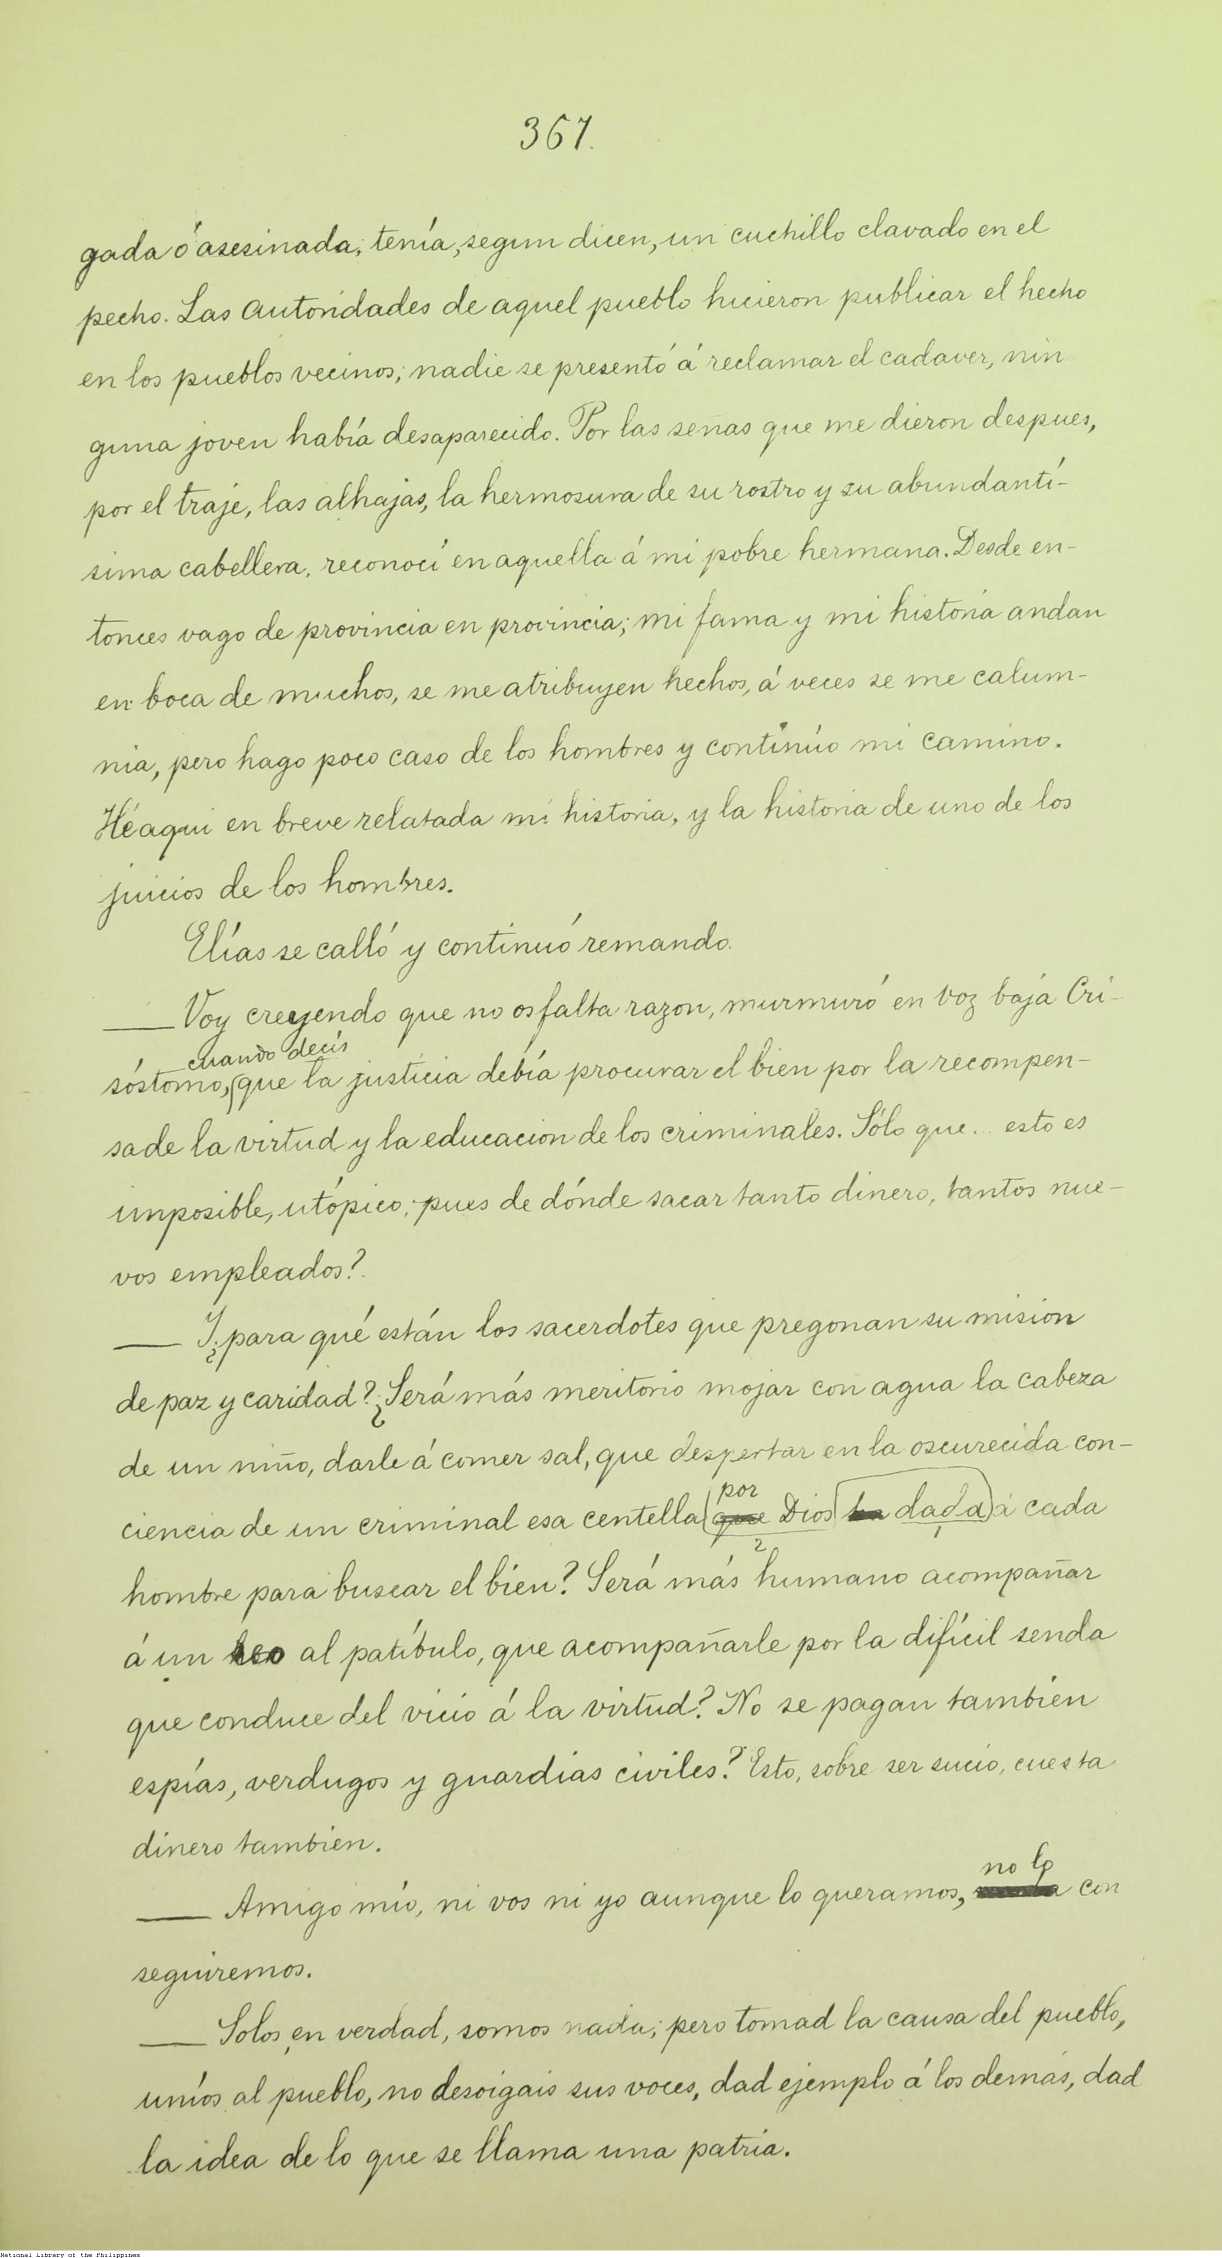 367.
gada ó asesinada; tenía, segun dicen, un cuchillo clavado en el
pecho. Las Autoridades de aquel pueblo hicieron publicar el hecho
en los pueblos vecinos; nadie se presentó á reclamar el cadaver, nin
guna joven había desaparecido. Por las señas que me dieron despues,
por el traje, las alhajas, la hermosura de su rostro y su abundantí-
sima cabellera, reconocí en aquella á mi pobre hermana. Desde en-
tonces vago de provincia en provincia; mi fama y mi historia andan
en boca de muchos, se me atribuyen hechos, á veces se me calum-
nia, pero hago poco caso de los hombres y continúo mi camino.
Hé aqui en breve relatada mi historia, y la historia de uno de los
juicios de los hombres.
Elías se calló y continuó remando.
— Voy creyendo que no os falta razon, murmuró en voz baja Cri-
cuando decís
sóstomo, que la justicia debía procurar el bien por la recompen-
sa de la virtud y la educacion de los criminales. Sólo que... esto es
imposible, utópico; pues de dónde sacar tanto dinero, tantos nue-
vos empleados?
— Y ¿para qué están los sacerdotes que pregonan su mision
de paz y caridad? ¿Será más meritorio mojar con agua la cabeza
de un niño, darle á comer sal, que despertar en la oscurecida con-
por
ciencia de un criminal esa centella que Dios ha dada á cada
2 1
hombre para buscar el bien? Será más humano acompañar
á un reo al patíbulo, que acompañarle por la difícil senda
que conduce del vicio á la virtud? No se pagan tambien
espías, verdugos y guardias civiles? Esto, sobre ser sucio, cuesta
dinero tambien.
no lo
— Amigo mío, ni vos ni yo aunque lo queramos, con
seguiremos.
— Solos, en verdad, somos nada; pero tomad la causa del pueblo,
uníos al pueblo, no desoigais sus voces, dad ejemplo á los demás, dad
la idea de lo que se llama una patria.
National Library of the Philippines